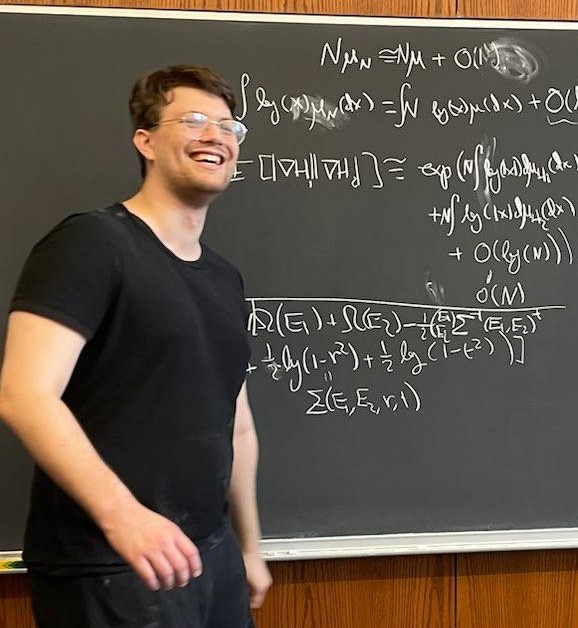 Nμ_N ≅ Nμ + O(1)
∫ log(x) μ_N(dx) = ∫N log(x) μ(dx) + O(
E [|∇H||∇H|] ≅ exp(N∫log(x)dμ
+N∫ log(x)dμ (dx)
+ O(log(N)))
o(N)
Ω(E₁) + Ω(E₂) - ½(E₁ E₂)Σ⁻¹(E₁,E₂)ᵗ
+ ½ log(1-r²) + ½ log(1-t²))]
Σ(E₁,E₂,r,t)